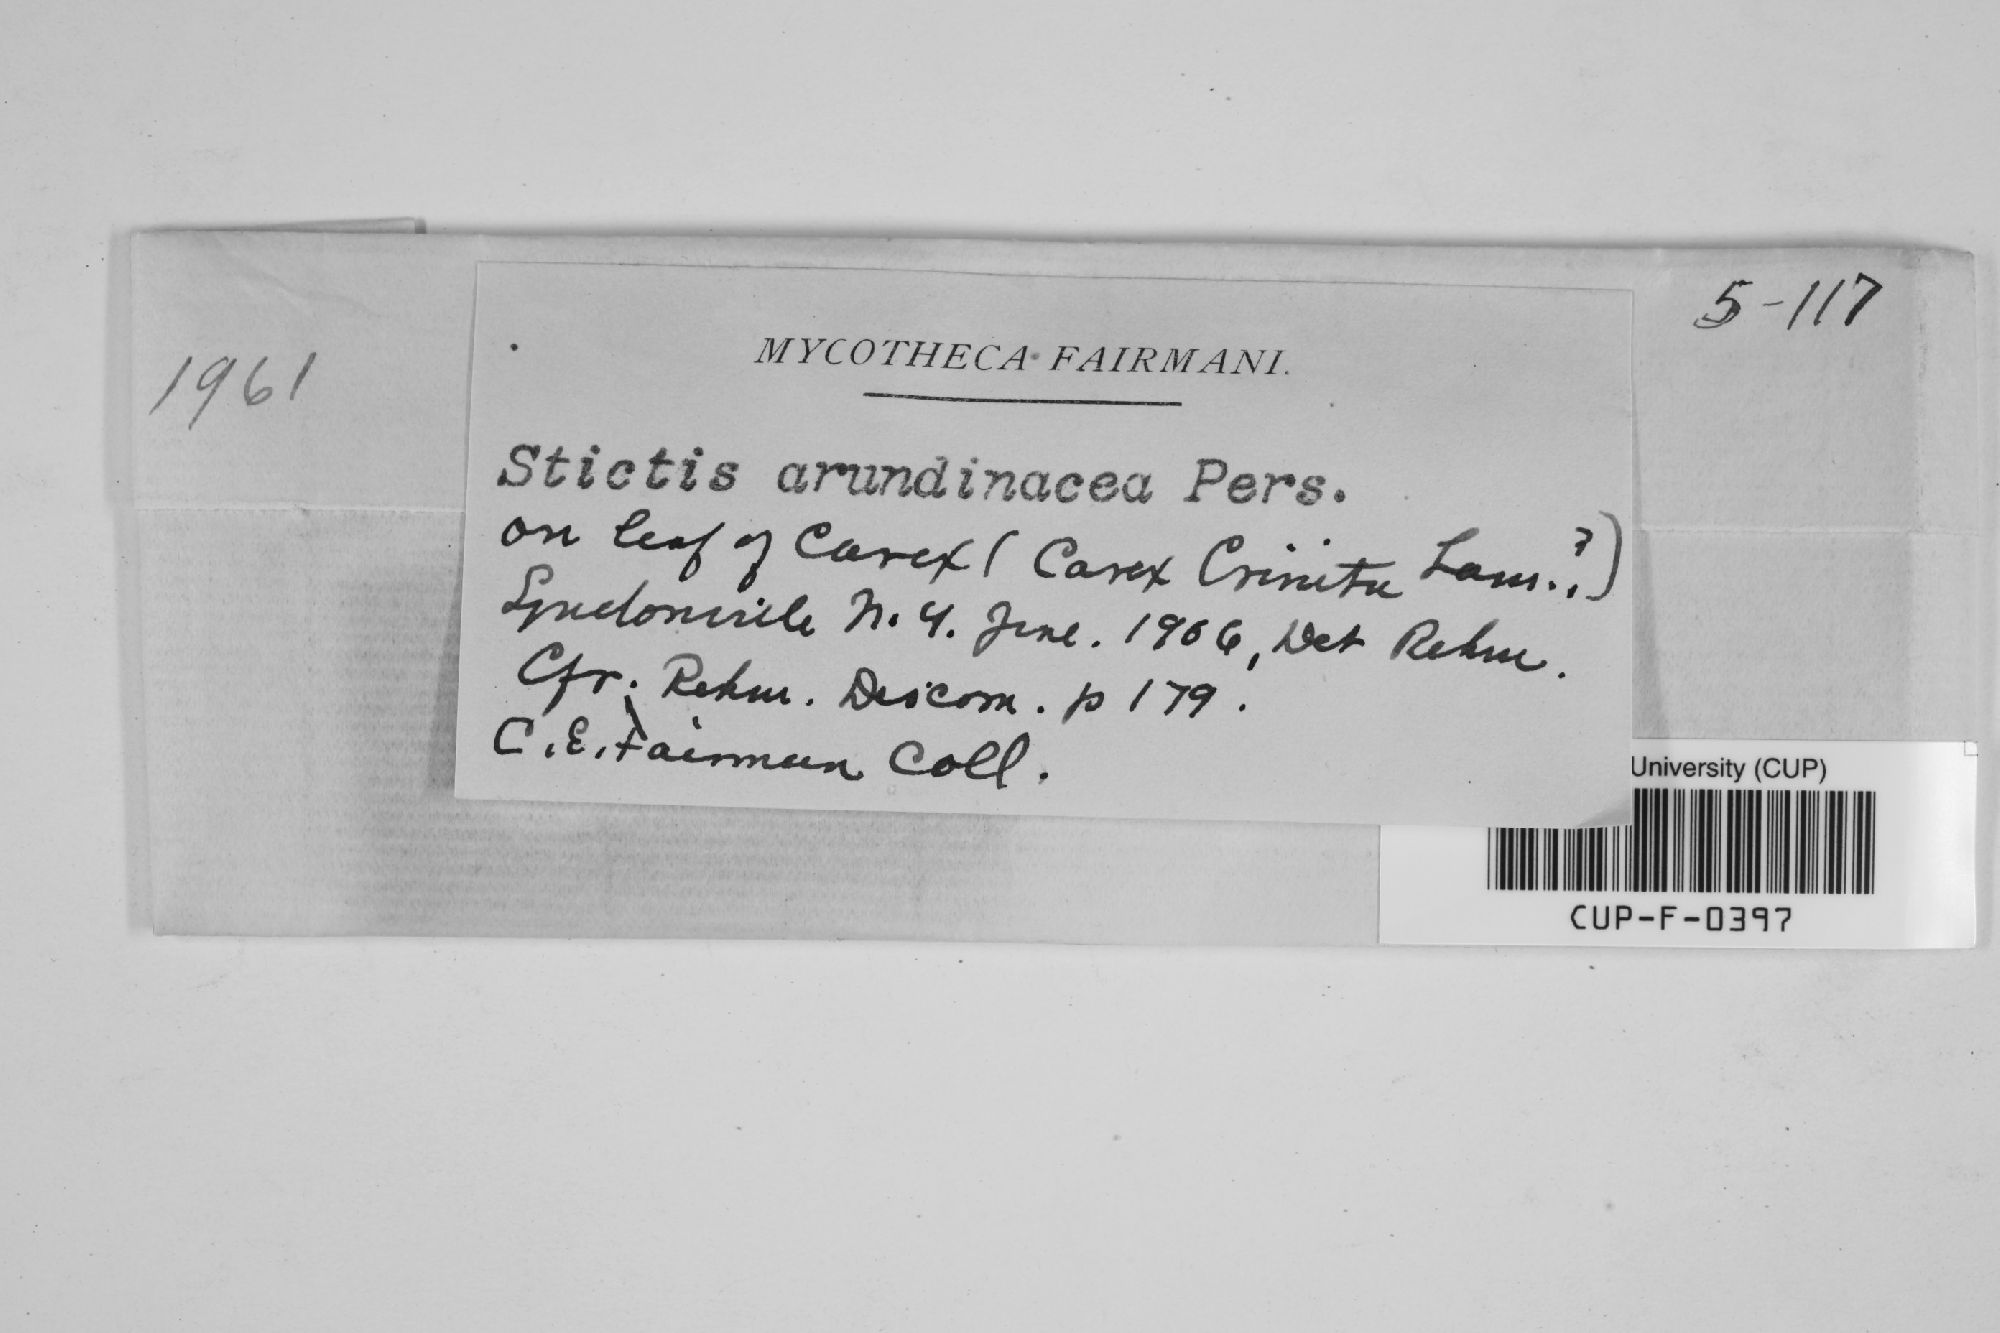 5-117
1961
MYCOTHECA FAIRMANI.
Stictis arundinacea Pers.
on leaf of Carex (Carex Crinita Lam.?)
Lyndonville N.Y. June. 1906, Det Rehm.
Cfr. Rehm. Discom. p 179.
C.E. Fairman Coll.
University (CUP)
CUP-F-0397